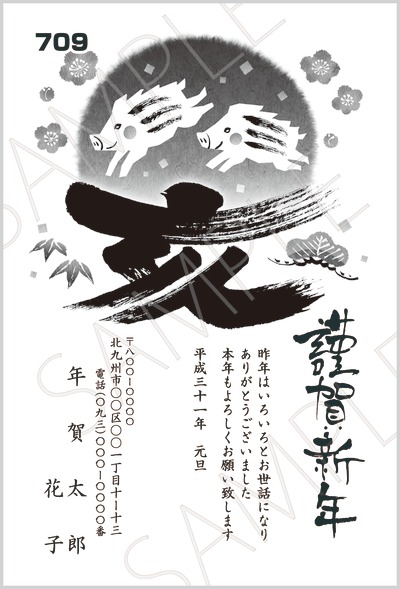 709
亥
謹賀新年
昨年はいろいろとお世話になり
ありがとうございました
本年もよろしくお願い致します
平成三十一年 元旦
〒八〇〇-〇〇〇〇
北九州市〇〇区〇〇一丁目十-十三
電話(〇九三)〇〇〇-〇〇〇〇番
年賀 太郎
花子
SAMPLE
SAMPLE
SAMPLE
SAMPLE